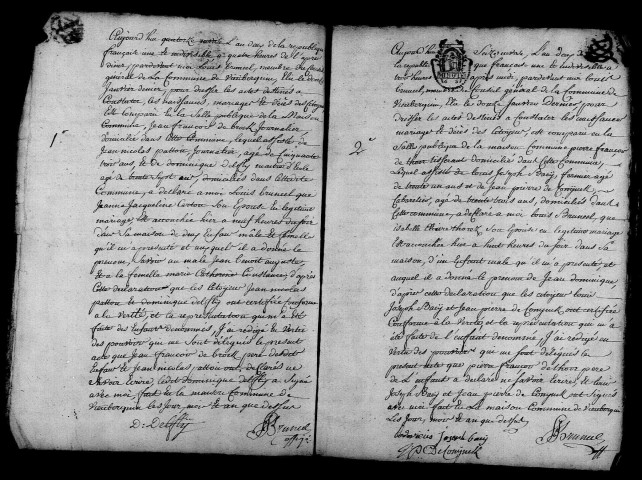 Aujourd'hui quatorze L'an deux de la republique
française une et indivisible, a quatre heures de l'après
diner, pardevant moi Louis Brunel, membre du Conseil
général de la Commune de Vieuberquin, élu le douze
janvier dernier, pour dresser les actes destinés a
Constater les naissances, mariages et décès des Citoyens
est comparu en la Salle publique de la Maison
Commune, jean francois de brock journalier
domicilié dans cette Commune, lequel assisté de
jean nicolas pattou journalier, agé de Cinquante
trois ans, et de dominique delfly
agé de trente sept ans, domiciliés dans cette dite
Commune, a déclaré a moi Louis brunel que
jeanne jacqueline Certon Son Epouse en legitime
mariage est accouchée hier a neuf heures du soir
dans sa maison de deux enfans mâle et femelle
qu'il m'a presenté et auxquels il a donné le
prenom, savoir au male jean benoit auguste,
et a la femelle marie Catherine Constance, d'après
cette declaration que les citoyens jean nicolas
pattou et dominique delfly ont certifiée conforme
a la verité, et la representation qui m'a été
faite des enfans denommés, j'ai rédigé en vertu
des pouvoirs qui me sont délégués le present
acte que jean francois de brock pere desdits
enfans et jean nicolas pattou ont declarés ne
savoir écrire, ledit dominique delfly a signé
avec moi, fait en la maison Commune de
Vieuberquin les jour, mois et an que dessus
D: Delfly Brunel
1º
Aujourd'hui Seize L'an deux de
la republique française une et indivisible a
trois heures après midi, pardevant moi Louis
brunel, Conseil général de la Commune de
Vieuberquin, élu le douze Janvier Dernier pour
dresser les actes destinés a Constater les naissances
mariage et décès des Citoyens, est comparu en la
Salle publique de la maison Commune, pierre francois
de thore tisserant domicilié dans cette Commune
lequel assisté de louis Joseph Baey, fermier agé
de trente un ans et de jean pierre de Conynck
Cabaretier, agé de trente trois ans, domiciliés dans
cette commune, a déclaré a moi Louis Brunel, que
isabelle Son Epouse en legitime mariage
est accouchée hier a huit heures du soir dans sa
maison, d'un Enfant male qu'il m'a presenté, et
auquel il a donné le prenom de Jean dominique
d'après cette déclaration que les citoyens louis
Joseph Baey et Jean pierre de Conynck ont certifiée
Conforme a la Verité et la representation qui m'a
été faite de l'enfant denommé, j'ai rédigé en
vertu des pouvoirs qui me sont délégués le
present acte que pierre francois de thore pere
de l'enfant a declaré ne savoir écrire, et louis
Joseph Baey et Jean pierre de Conynck ont signés
avec moi fait en la maison Commune de Vieuberquin
Les jour, mois et an que dessus
Ludovicus Joseph baey Brunel
J P De Conynck
2º